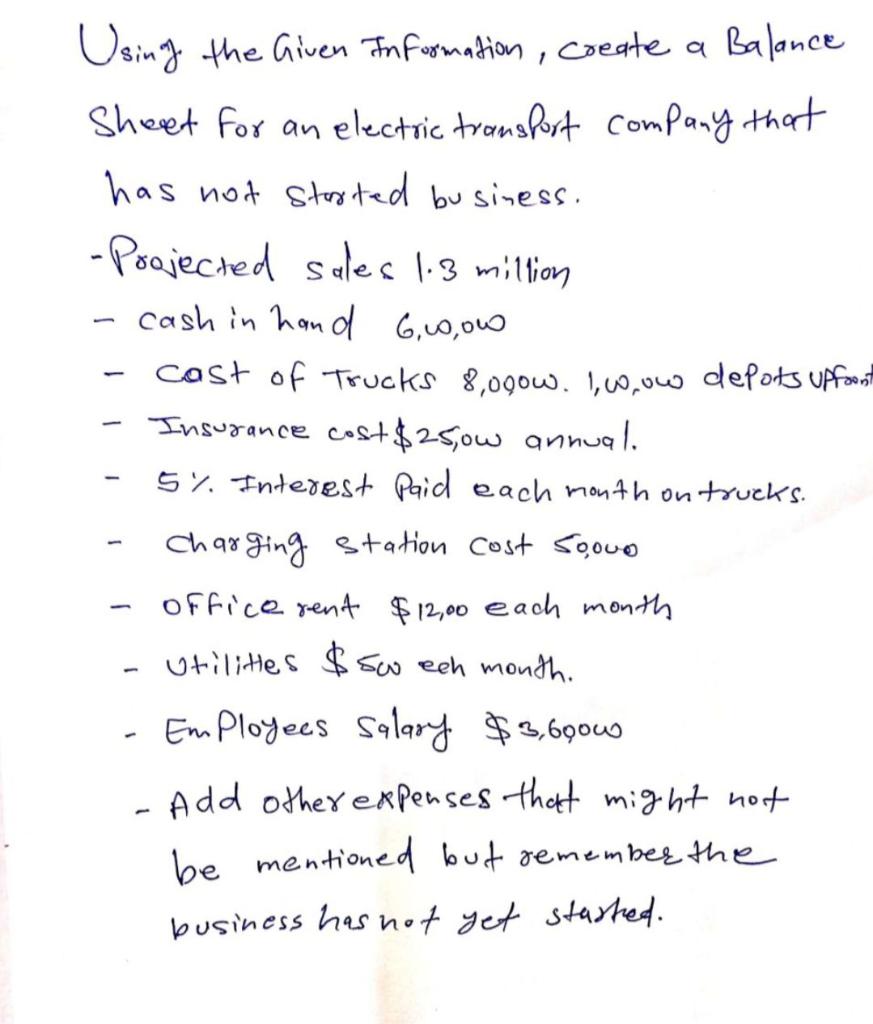 Using the Given Information, create a Balance
Sheet for an electric transport company that
has not started business.
- Projected sales 1.3 million
- cash in hand 6,00,000
- cost of Trucks 8,00000. 1,00,000 depots upfront
- Insurance cost $25,000 annual.
- 5% Interest Paid each month on trucks.
- Charging station cost 50,000
- office rent $12,00 each month
- Utilities $500 eeh month.
- Employees Salary $3,60000
- Add other expenses that might not
be mentioned but remember the
business has not yet started.